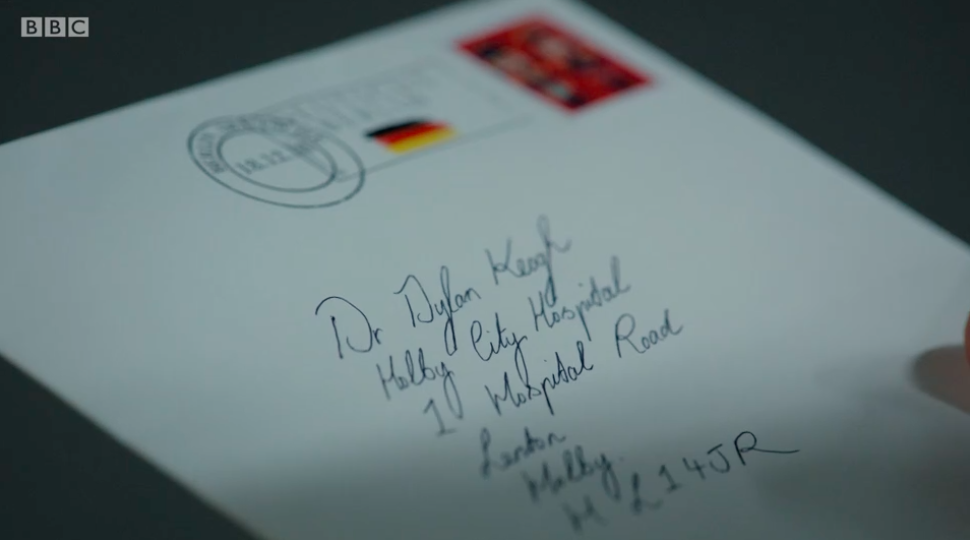 BBC
18.12
Dr Dylan Keogh
Holby City Hospital
1 Hospital Road
Lenton
Holby.
H L14JR